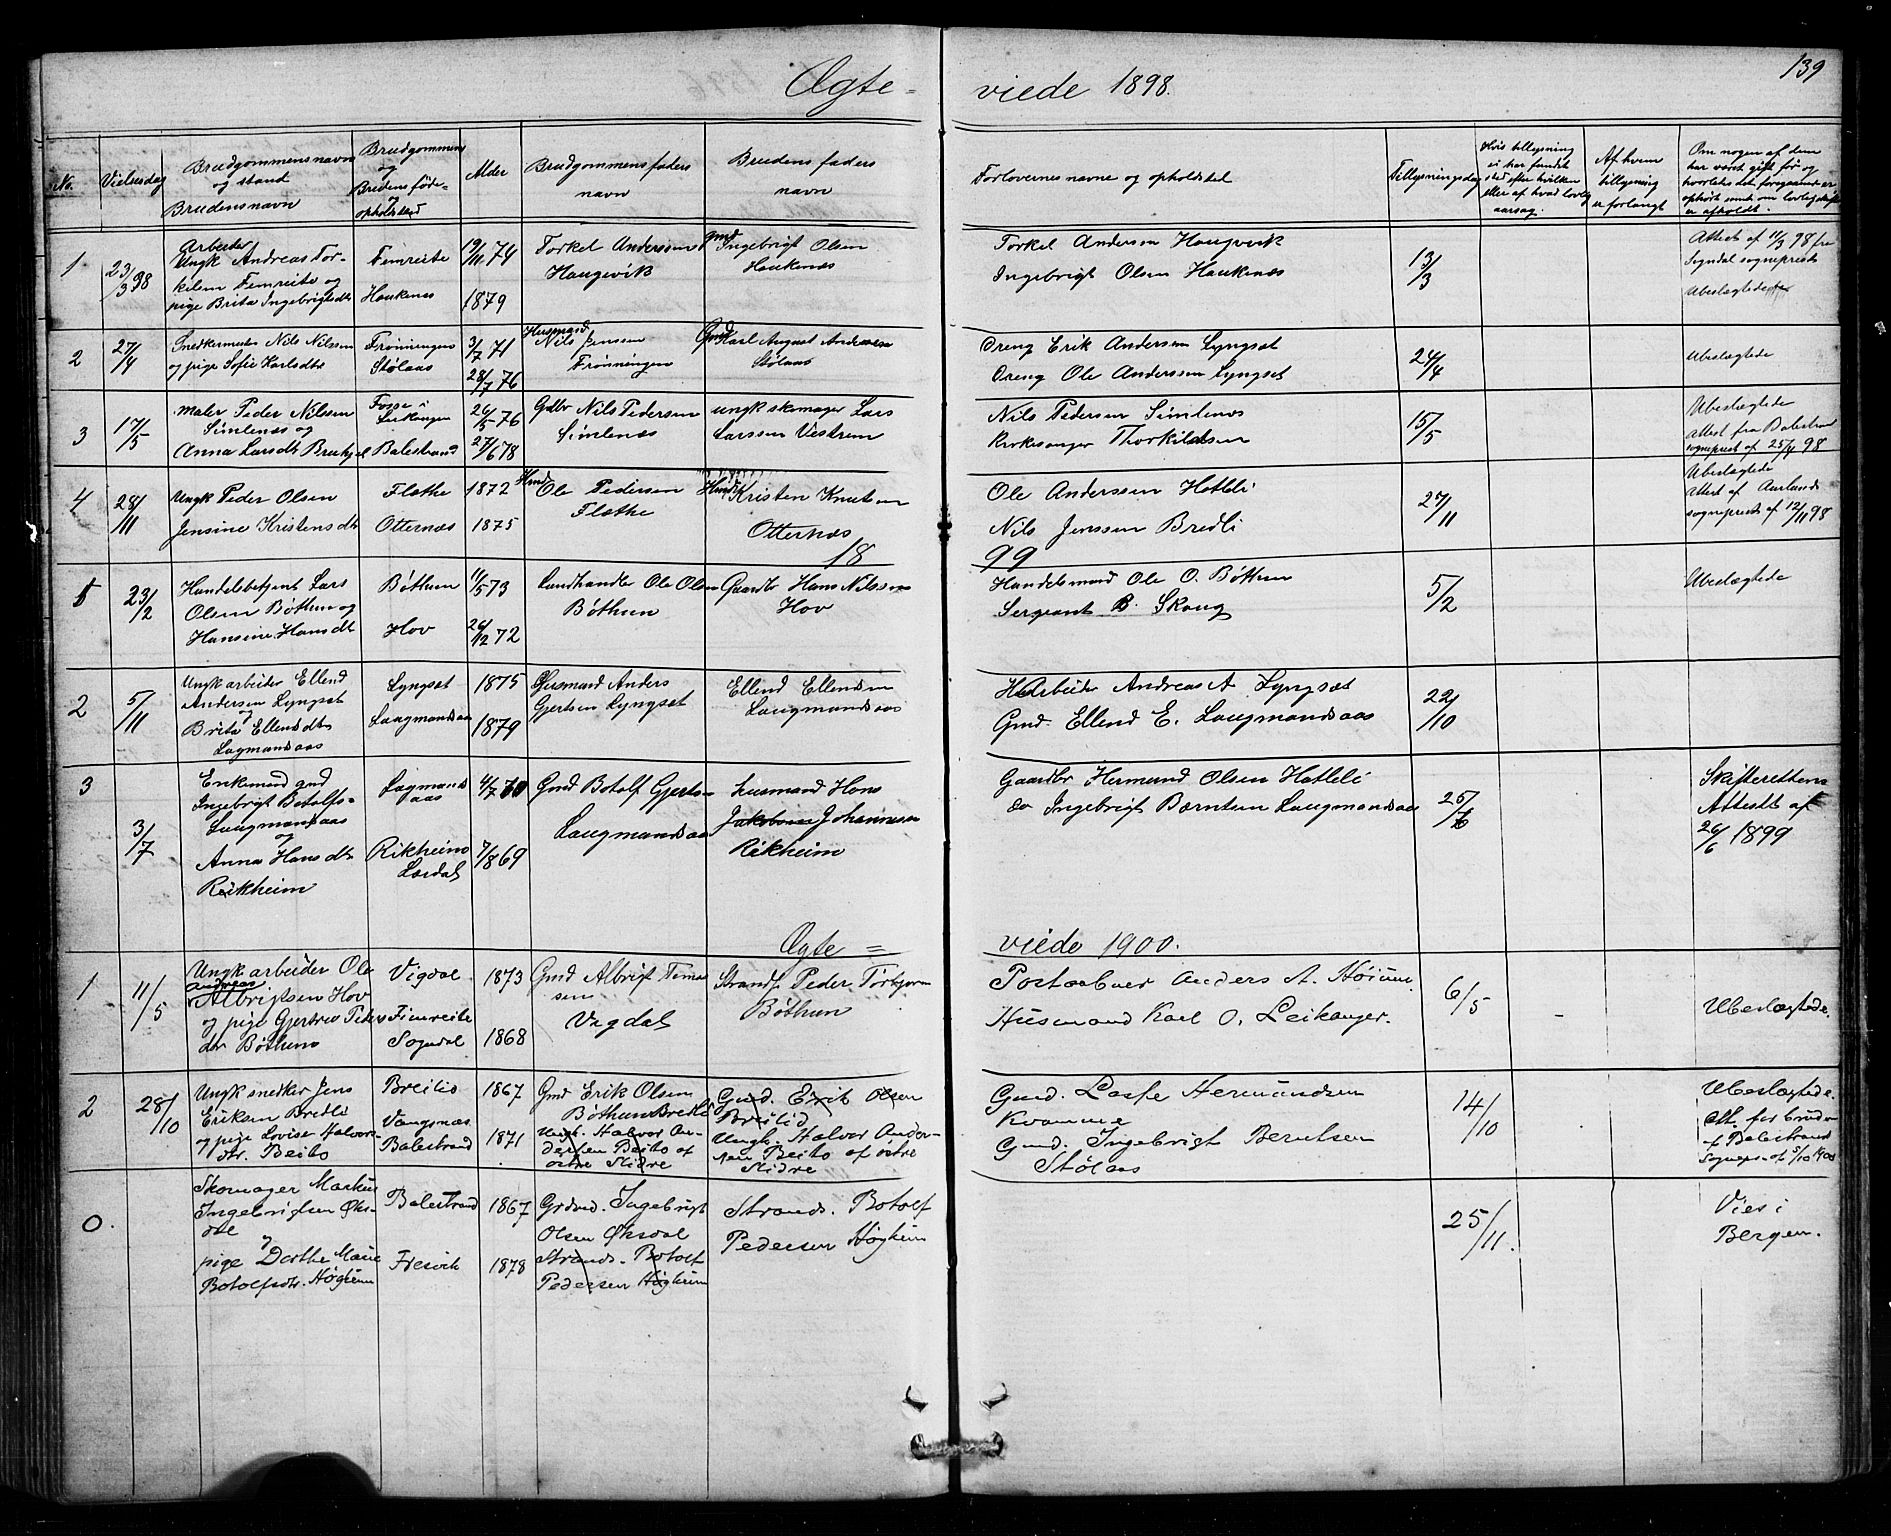 139
Ægte = viede 1898.
No.
Vielsesdag
Brudgommens navn
og stand
Brudens navn
Brudgommens
og
Brudens føde-
og
opholdssted
Alder
Brudgommens faders
navn
Brudens faders
navn
Forlovernes navne og opholdsted
Tillysningsdag
Hvis tillysning
ei har fundet
sted efter hvilken
eller af hvad lovlig
aarsag.
Af hvem
tillysning
er forlangt
Om nogen af dem
har været gift før og
hvorledes det foregaaende er
ophört samt om lovlig skifte
er afholdt.
1
23/3 98
Arbeider
Ungk Andreas Tor-
kilsen Fimreite og
pige Brita Ingebrigtsdtr
Fimreite
Haukenæs
19/11 74
1879
Torkel Anderssen
Haugevik
Gmd Ingebrigt Olsen
Haukenæs
Torkel Andersen Haugvik
Ingebrigt Olsen Haukenæs
13/3
Attest af 11/3 98 fra
Sogndal sogneprest
Ubeslægtede
2
27/4
Snedkermester Nils Nilssen
og pige Sofie Karlsdtr
Frønningen
Stølaas
3/7 71
28/7 76
Husmand
Nils Jenssen
Frønningen
Gmd Karl August Andersen
Stølaas
Dreng Erik Andersen Lyngset
Dreng Ole Anderssen Lyngset
24/4
Ubeslægtede
3
17/5
Maler Peder Nilssen
Simlenæs og
Anna Larsdtr
Fosse i
Leikanger
Balestrand
26/5 76
27/6 78
Gdbr Nils Pedersen
Simlenæs
ungk skomager Lars
Larssen Vestrem
Nils Pedersen Simlenæs
Kirkesanger Thorkildsen
15/5
Ubeslægtede
Attest fra Balestrand
sogneprest af 25/4 98
4
28/11
Ungk Peder Olsen
Jensine Kristensdtr
Flathe
Otternæs
1872
1875
Hmd Ole Pedersen
Flathe
Hmd Kristen Knutsen
Otternæs
Ole Anderssen Hatleli
Nils Jenssen Bredli
27/11
Ubeslægtede
Attest af Aurlands
sogneprest af 12/11 98
18 99
1
23/2
Handelsbetjent Lars
Olsen Bøthun og
Hansine Hansdtr
Bøthun
Hov
11/5 73
26/12 72
Landhandler Ole Olsen
Bøthun
Gaardbr Hans Nilssen
Hov
Handelsmand Ole O. Bøthun
Sergeant B. Skaug
5/2
Ubeslægtede
2
5/11
Ungk arbeider Ellend
Andersen Lyngset
og
Brita Ellensdtr
Lagmandsaas
Lyngset
Laugmandsaas
1875
1879
Husmand Anders
Gjertsen Lyngset
Ellend Ellendsen
Laugmandsaas
Arbeider Andreas A Lyngset
Gmd. Ellend E. Laugmandsaas
22/10
3
3/7
Enkemand gmd
Ingebrigt Botolfs-
Laugmandsaas
og
Anna Hansdtr
Rikheim
Lagmands
aas
Rikheim
Lærdal
4/7 70
7/8 69
Gmd Botolf Gjerts-
Laugmandsaas
Husmand Hans
Johannesen
Rikheim
Gaardbr Hermund Olsen Hatleli
do Ingebrigt Berntsen Laugmandsaas
25/6
Skifterettens
Attest af
26/6 1899
Ægte = viede 1900.
1
11/5
Ungk arbeider Ole
Andreas
Albrigtsen Hov
og pige Gjertrud Peders
dtr Bøthun
Vigdal
Fimreite
Sogndal
1873
1868
Gmd Albrigt Tomas
sen
Vigdal
Strands. Peder Torbjørn
Bøthun
Postaabner Anders A. Høium.
Husmand Karl O. Leikanger.
6/5
-
Ubeslægtede.
2
28/10
Ungk snedker Jens
Eriksen Bredli
og pige Lovise Halvors
dtr. Beito
Breilid
Vangsnæs
Balestrand
1867
1871
Gmd Erik Olsen
Bøthun Bredli
Ungk. Halvor An-
dersen Beito af
østre Slidre
Gmd. Erik Olsen
Breilid
Ungk. Halvor Ander-
sen Beito af østre
Slidre
Gmd. Lasse Hermundsen
Kvamme
Gmd. Ingebrigt Berntsen
Stølaas
14/10
Ubeslægtede.
Att. for bruden
af Balestrand
Sognepr. af 5/10 1900
0.
Skomager Markus
Ingebrigtsen Øks-
dal
og
pige Dorthe Marie
Botolfsdtr. Høgheim
Balestrand
Fresvik
1867
1878
Grdmd. Ingebrigt
Olsen Øksdal
Strands. Botolf
Pedersen Høgheim
Strands. Botolf
Pedersen Høgheim
25/11.
Vies i
Bergen.